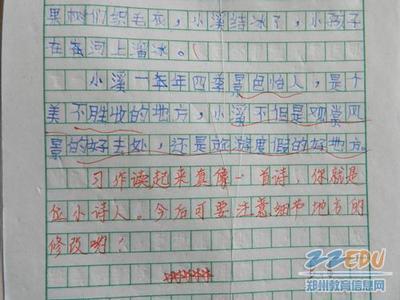 果树们织毛衣，小溪结冰了，小孩子
在在河上溜冰。
小溪一本年四季景色怡人，是个
美不胜收的地方，小溪不但是观赏风
景的好去处，还是旅游度假的好地方。
习作读起来真像一首诗，你就是
位小诗人。今后可要注意细节地方的
修改哟！
ZZEDU
郑州教育信息网